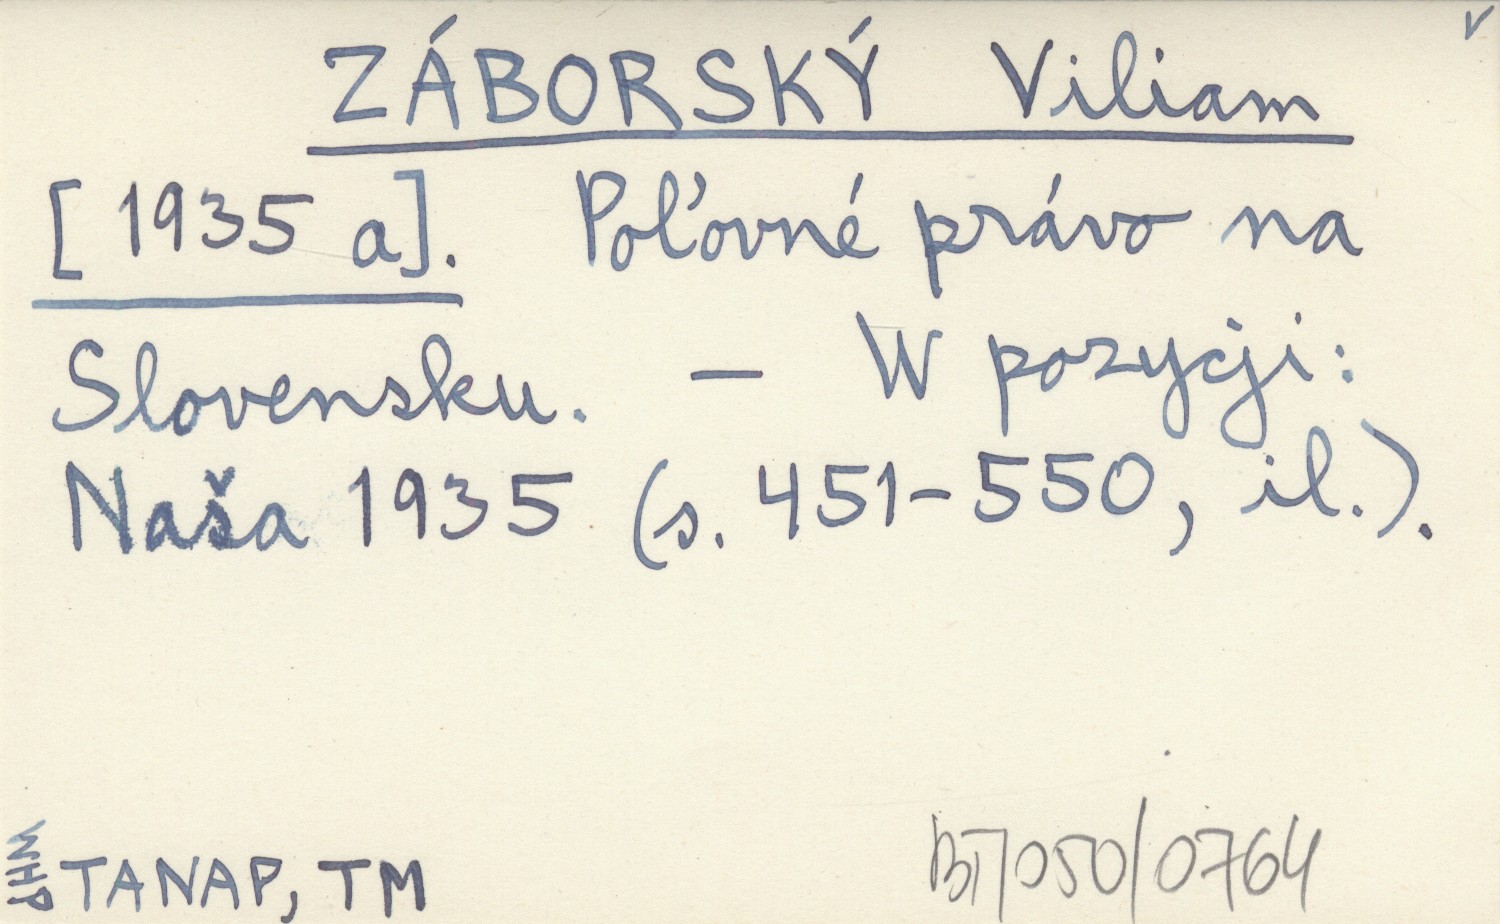 v
ZÁBORSKÝ Viliam
[1935 a]. Poľovné právo na
Slovensku. — W pozycji:
Naša 1935 (s. 451-550, il.).
WHP
TANAP, TM
BT/050/0764